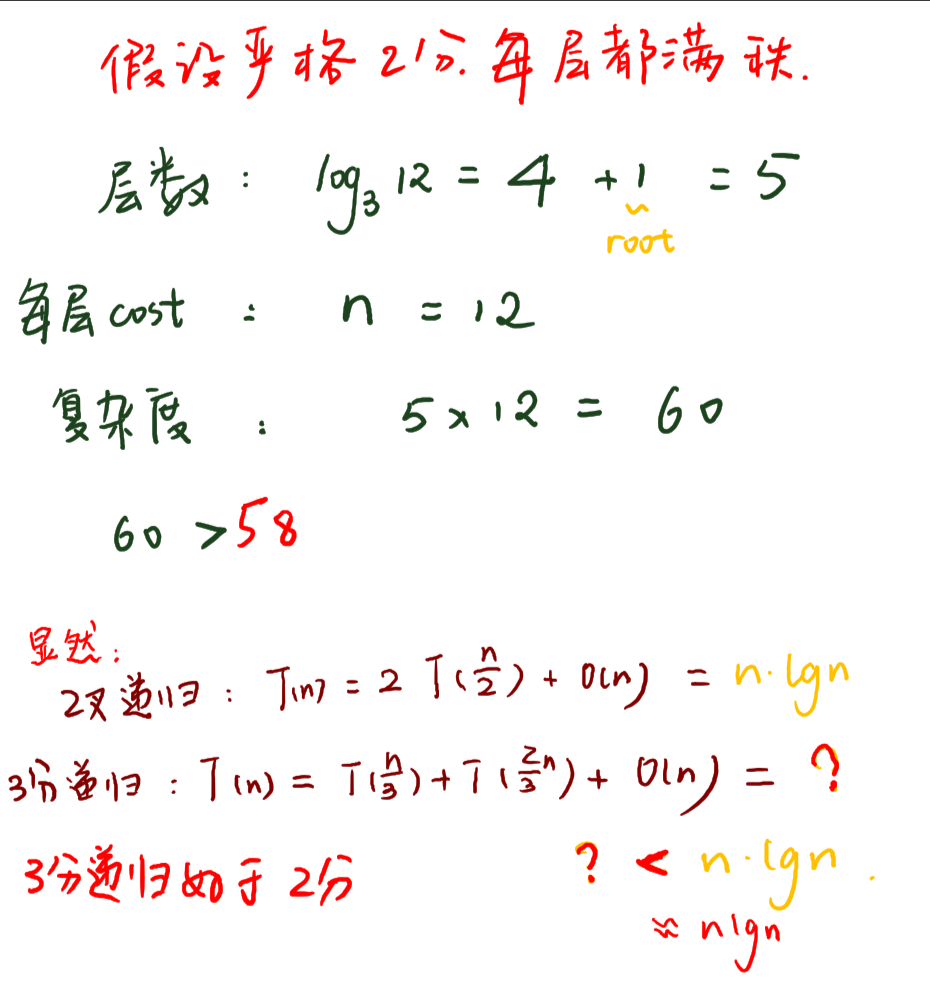 假设严格2分.每层都满秩.
层数: log₃12 = 4 +1 = 5
root
每层cost : n = 12
复杂度 : 5 x 12 = 60
60 > 58
显然:
2叉递归: T(n) = 2 T(n/2) + O(n) = n·lgn
3分递归: T(n) = T(n/3) + T(2/3n) + O(n) = ?
3分递归 于 2分 ? < n·lgn.
≈ nlgn